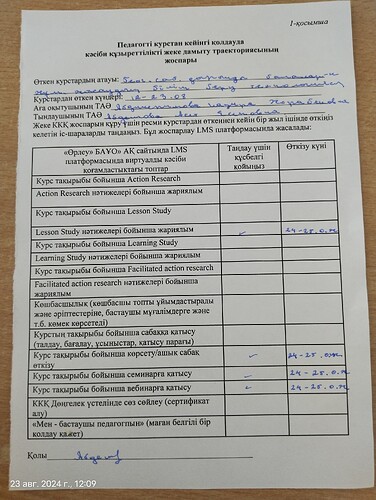 1-қосымша
Педагогті курстан кейінгі қолдауда
кәсіби құзыреттілікті жеке дамыту траекториясының
жоспары
Өткен курстардың атауы:
Курстардан өткен күндері: 12-23.08
Аға оқытушының ТАӘ
Тыңдаушының ТАӘ
Жеке ККҚ жоспарын құру үшін ресми курстардан өткеннен кейін бір жыл ішінде өткізгіңіз
келетін іс-шараларды таңдаңыз. Бұл жоспарлау LMS платформасында жасалады:
«Өрлеу» БАҰО» АҚ сайтында LMS платформасында виртуалды кәсіби қоғамдастықтағы топтар
Таңдау үшін құсбелгі қойыңыз
Өткізу күні
Курс тақырыбы бойынша Action Research
Action Research нәтижелері бойынша жариялым
Курс тақырыбы бойынша Lesson Study
Lesson Study нәтижелері бойынша жариялым ✓ 24-25.о.ж
Курс тақырыбы бойынша Learning Study
Learning Study нәтижелері бойынша жариялым
Курс тақырыбы бойынша Facilitated action research
Facilitated action research нәтижелері бойынша
жариялым
Көшбасшылық (көшбасшы топты ұйымдастырады
және әріптестеріне, бастаушы мұғалімдерге және
т.б. көмек көрсетеді)
Курстың тақырыбы бойынша сабаққа қатысу
(талдау, бағалау, ұсыныстар, қатысу парағы)
Курс тақырыбы бойынша көрсету/ашық сабақ
өткізу ✓ 24-25.о.ж
Курс тақырыбы бойынша семинарға қатысу ✓ 24-25.о.ж
Курс тақырыбы бойынша вебинарға қатысу ✓ 24-25.о.ж
ККҚ Дөңгелек үстелінде сөз сөйлеу (сертификат
алу)
«Мен - бастаушы педагогпын» (маған белгілі бір
қолдау қажет)
Қолы
23 авг. 2024 г., 12:09